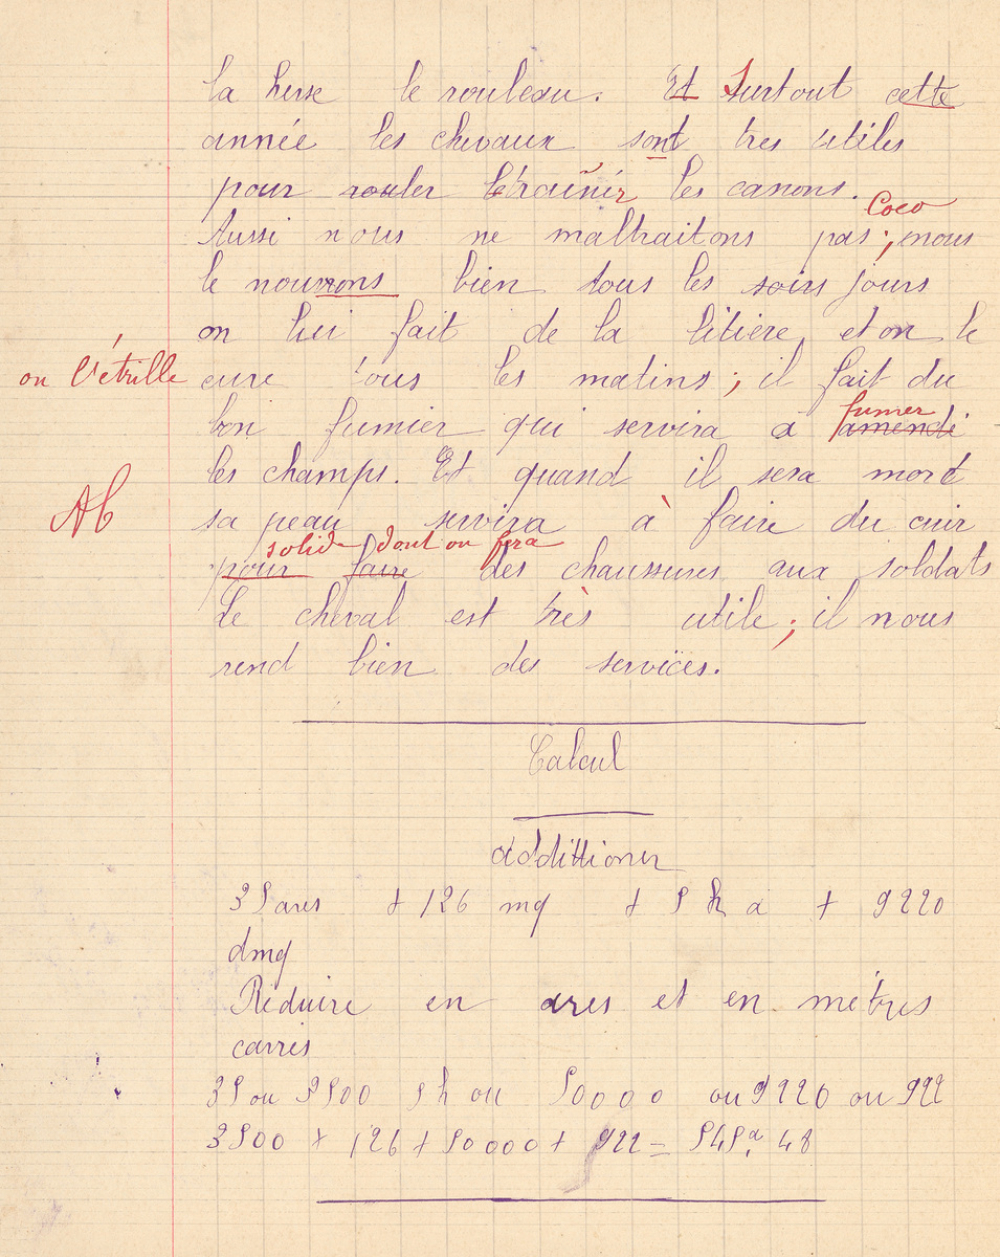 la herse le rouleau. Et Surtout cette
année les chevaux sont tres utiles
pour rouler traîner les canons.
Coco
Aussi nous ne maltraitons pas ; nous
le nourrons bien tous les soirs jours
on lui fait de la litière, et on le
on l'étrille cure tous les matins ; il fait du
fumer
bon fumier qui servira a amendé
les champs. Et quand il sera mort
AC
sa peau servira à faire du cuir
solide dont on fera
pour faire des chaussures aux soldats
Le cheval est très utile ; il nous
rend bien des services.
Calcul
additionner
35 ares + 126 mq + 5 ha + 9220
dmq
Réduire en ares et en mètres
carrés
35 ou 3500 5 h ou 50000 ou 9220 ou 922
3500 + 126 + 50000 + 922 = 545a, 48